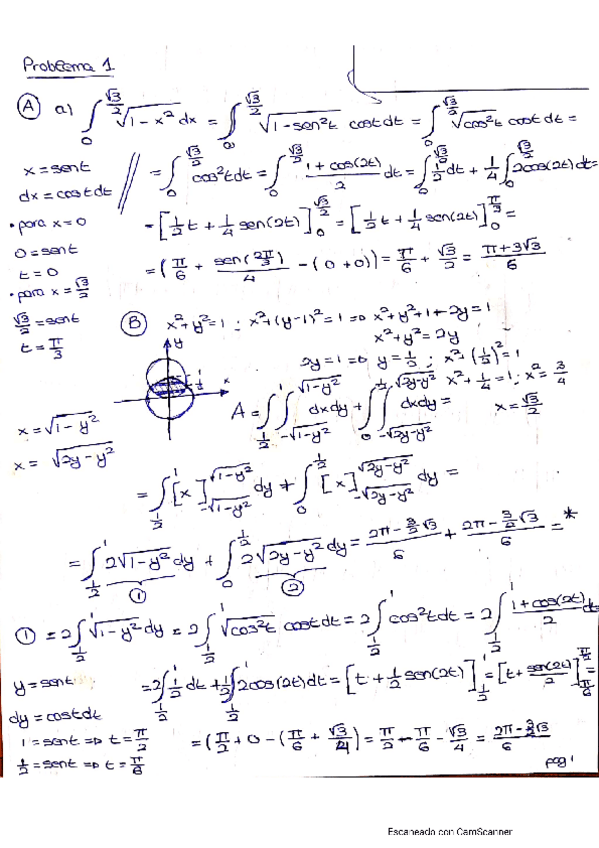 Problema 1
A a) ∫₀^(√3/2) √(1-x²) dx = ∫₀^(√3/2) √(1-sen²t) cost dt = ∫₀^(√3/2) √(cos²t) cost dt =
x = sent
dx = cost dt
= ∫₀^(√3/2) cos²t dt = ∫₀^(√3/2) (1+cos(2t))/2 dt = ∫₀^(√3/2) 1/2 dt + 1/4 ∫₀^(√3/2) 2cos(2t)dt =
• para x=0
0=sent
t=0
= [1/2 t + 1/4 sen(2t)]₀^(√3/2) = [1/2 t + 1/4 sen(2t)]₀^(π/3) =
• para x = √3/2
√3/2 = sent
t = π/3
= (π/6 + sen(2π/3)/4 - (0+0)) = π/6 + √3/2 = (π+3√3)/6
B x²+y²=1 ; x²+(y-1)²=1 => x²+y²+1-2y=1
x²+y²=2y
2y=1 => y=1/2 ; x²+(1/2)²=1
x²+1/4=1 ; x²=3/4
x=√3/2
y
x
1/2
x=√(1-y²)
x= √(2y-y²)
A = ∫_(1/2)^1 ∫_(-√(1-y²))^(√(1-y²)) dxdy + ∫₀^(1/2) ∫_(-√(2y-y²))^(√(2y-y²)) dxdy =
= ∫_(1/2)^1 [x]_(-√(1-y²))^(√(1-y²)) dy + ∫₀^(1/2) [x]_(-√(2y-y²))^(√(2y-y²)) dy =
= ∫_(1/2)^1 2√(1-y²) dy + ∫₀^(1/2) 2√(2y-y²) dy = (2π-3/2√3)/6 + (2π-3/2√3)/6 = *
1 2
1 = 2∫_(1/2)^1 √(1-y²) dy = 2∫_(1/2)^1 √(cos²t) cost dt = 2∫_(1/2)^1 cos²t dt = 2∫_(1/2)^1 (1+cos(2t))/2 dt
y = sent
dy = cost dt
= 2∫_(1/2)^1 1/2 dt + 1/2 ∫_(1/2)^1 2cos(2t)dt = [t + 1/2 sen(2t)]_(1/2)^1 = [t + sen(2t)/2]_(π/6)^(π/2) =
1 = sent => t = π/2
1/2 = sent => t = π/6
= (π/2 + 0 - (π/6 + √3/4) = π/2 - π/6 - √3/4 = (2π-3/2√3)/6
pag 1
Escaneado con CamScanner